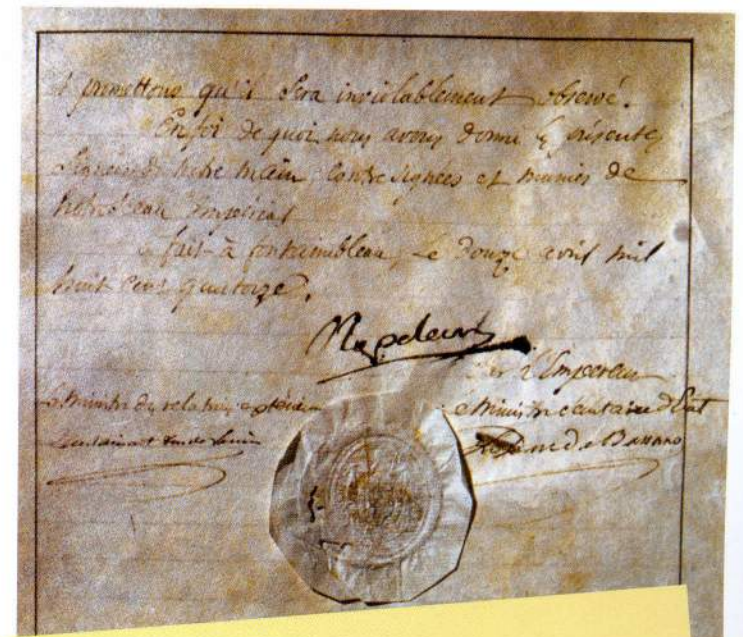 promettons qu'il sera inviolablement observé.
En foi de quoi nous avons donné les présentes
Signées de notre main, contresignées et munies de
notre Sceau impérial
fait à fontainebleau, le douze avril mil
huit cent quatorze.
Napoleon
Par l'Empereur
Le Ministre des relations extérieures
Le Ministre Secretaire d'Etat
Caulaincourt duc de Vicence
Le Duc de Bassano